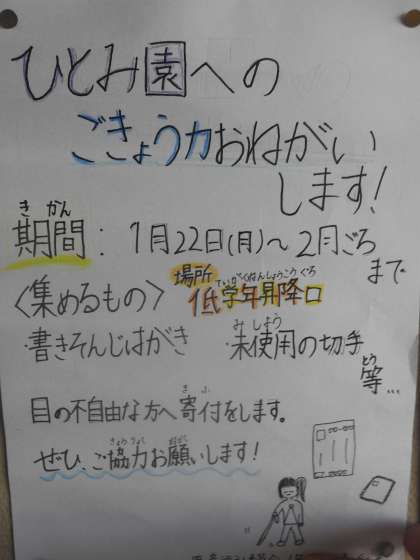 ひとみ園への
ごきょう力おねがい
します!
きかん
期間:1月22日(月)〜2月ごろ
まで
場所
ていがくねんしょうこうぐち
低学年昇降口
〈集めるもの〉
・書きそんじはがき
みしよう
・未使用の切手
とう
等...
きふ
目の不自由な方へ寄付をします。
きょうりょく ねが
ぜひ、ご協力お願いします!